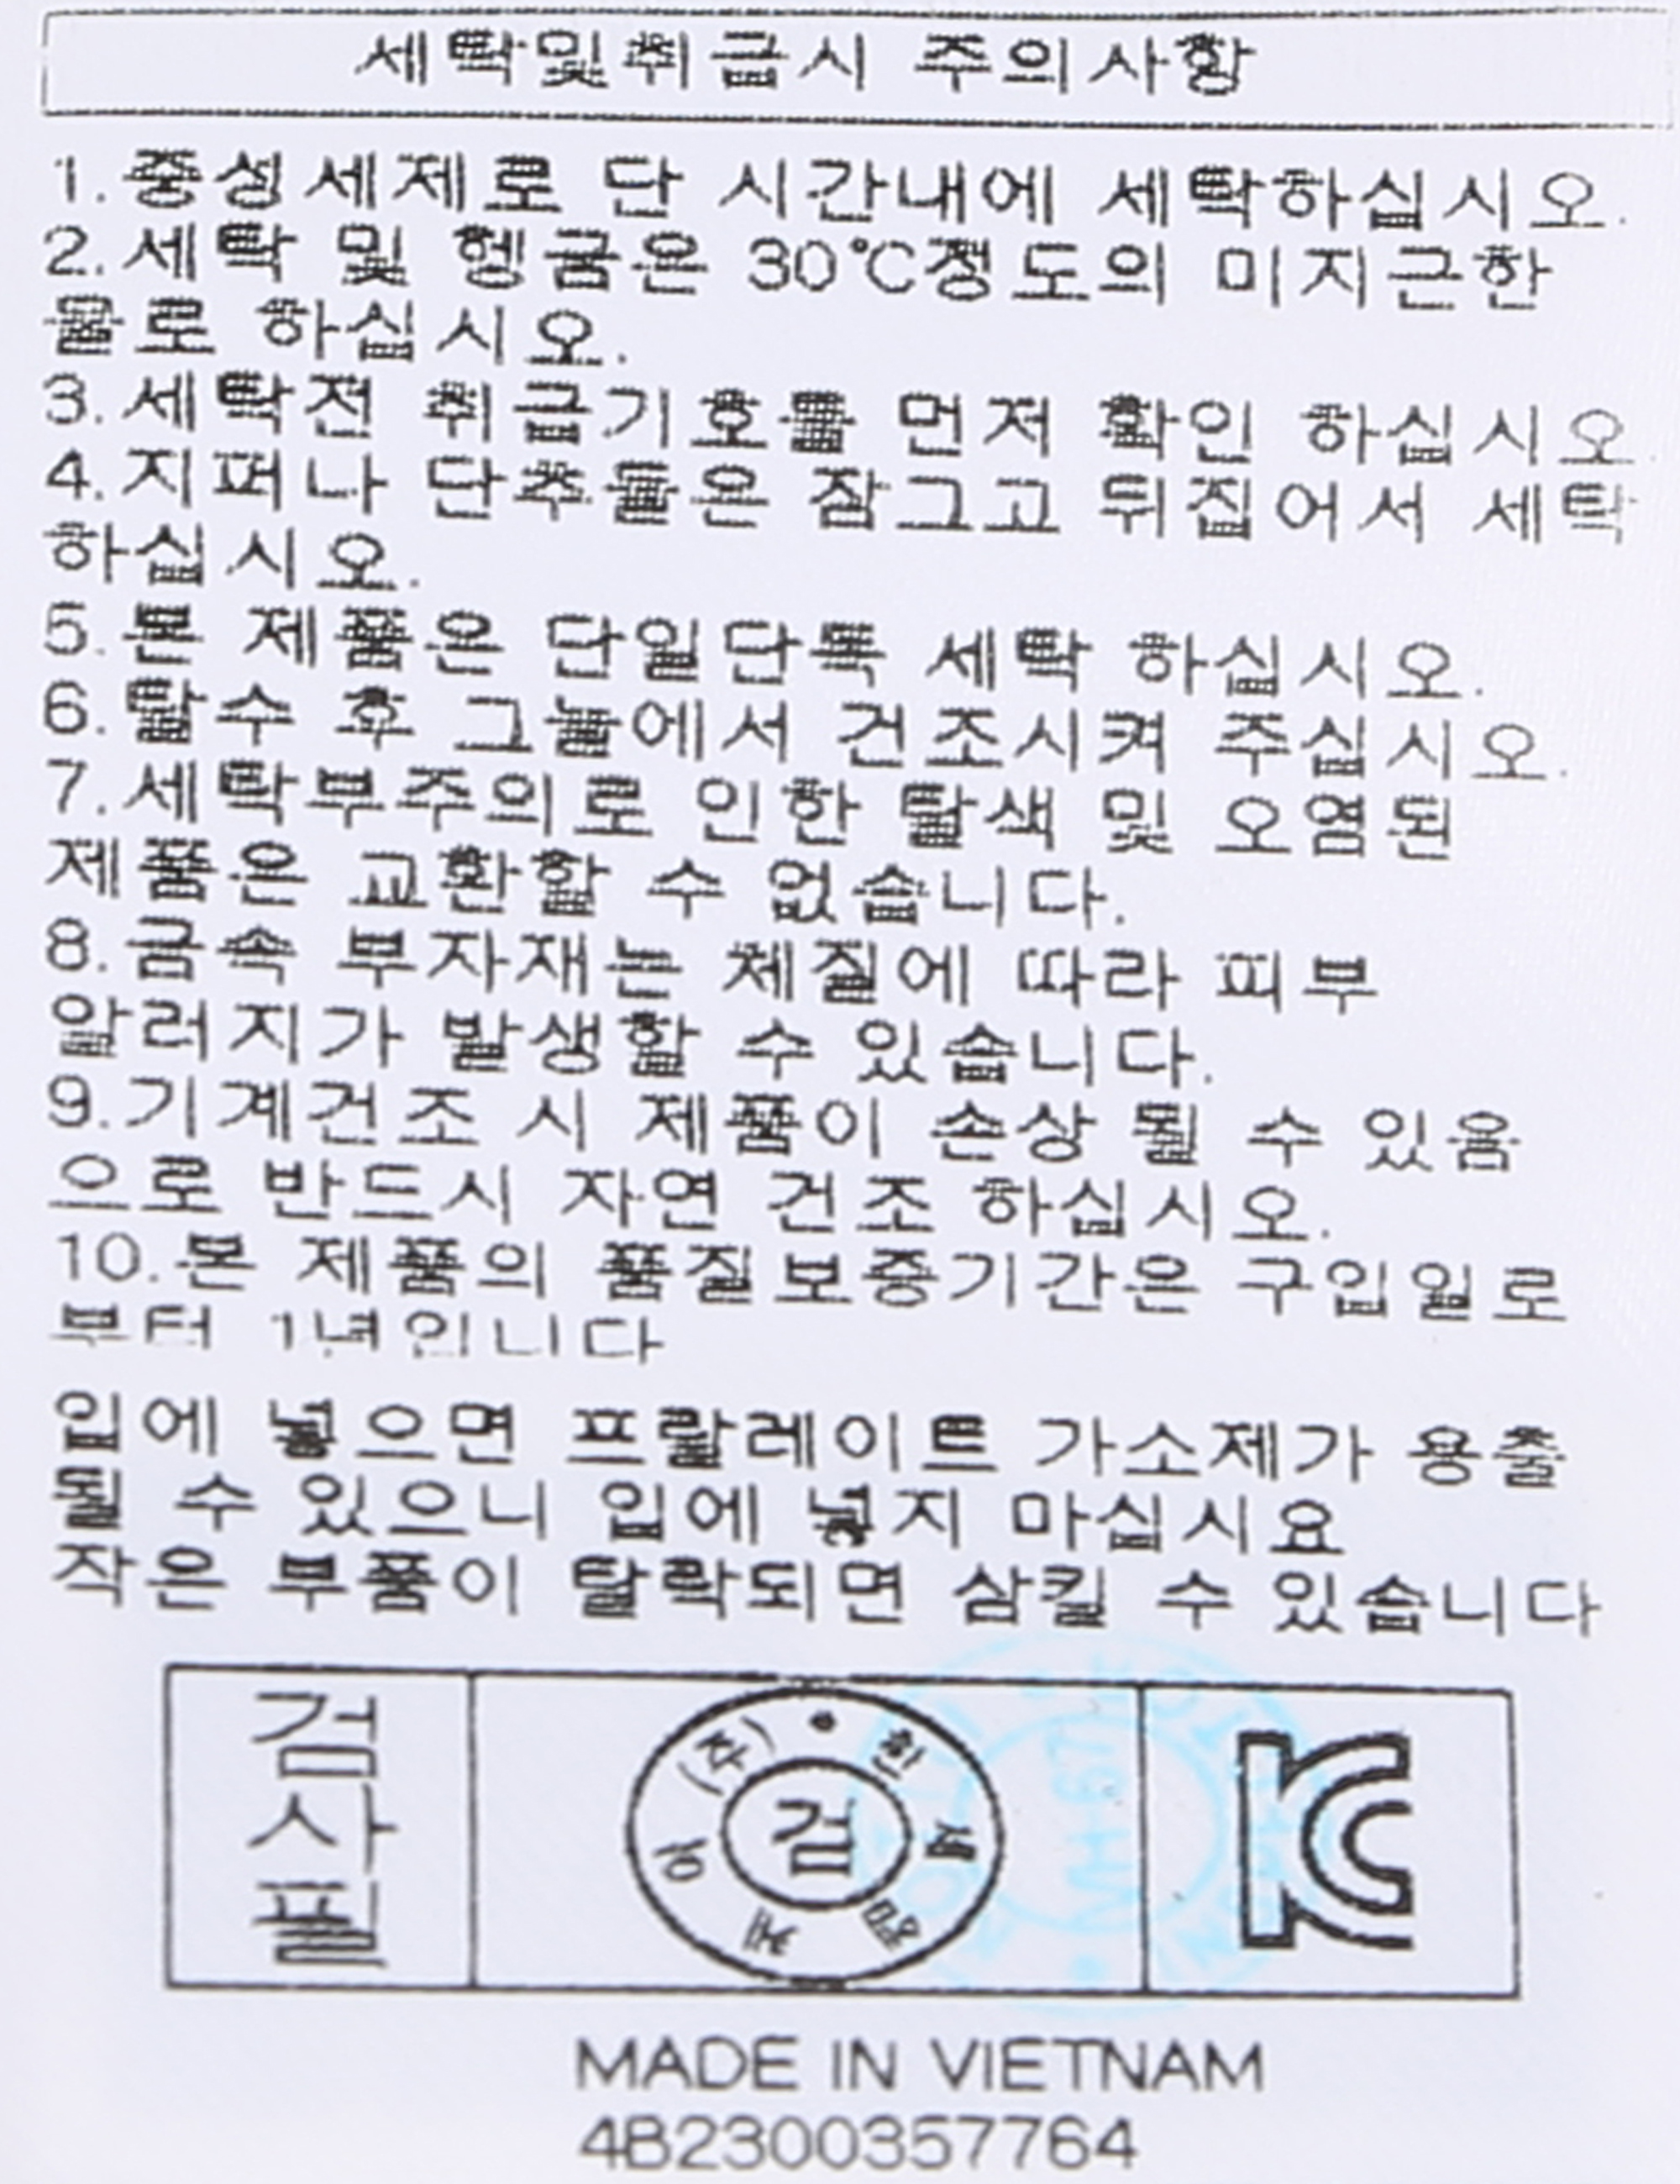 세탁및취급시 주의사항
1.중성세제로 단 시간내에 세탁하십시오.
2.세탁 및 헹굼은 30℃정도의 미지근한
물로 하십시오.
3.세탁전 취급기호를 먼저 확인 하십시오.
4.지퍼나 단추들은 잠그고 뒤집어서 세탁
하십시오.
5.본 제품은 단일단독 세탁 하십시오.
6.탈수 후 그늘에서 건조시켜 주십시오.
7.세탁부주의로 인한 탈색 및 오염된
제품은 교환할 수 없습니다.
8.금속 부자재는 체질에 따라 피부
알러지가 발생할 수 있습니다.
9.기계건조 시 제품이 손상 될 수 있음
으로 반드시 자연 건조 하십시오.
10.본 제품의 품질보증기간은 구입일로
부터 1년입니다
입에 넣으면 프탈레이트 가소제가 용출
될 수 있으니 입에 넣지 마십시요
작은 부품이 탈락되면 삼킬 수 있습니다
검사필
(주)한세엠케이
검
KC
MADE IN VIETNAM
4B2300357764